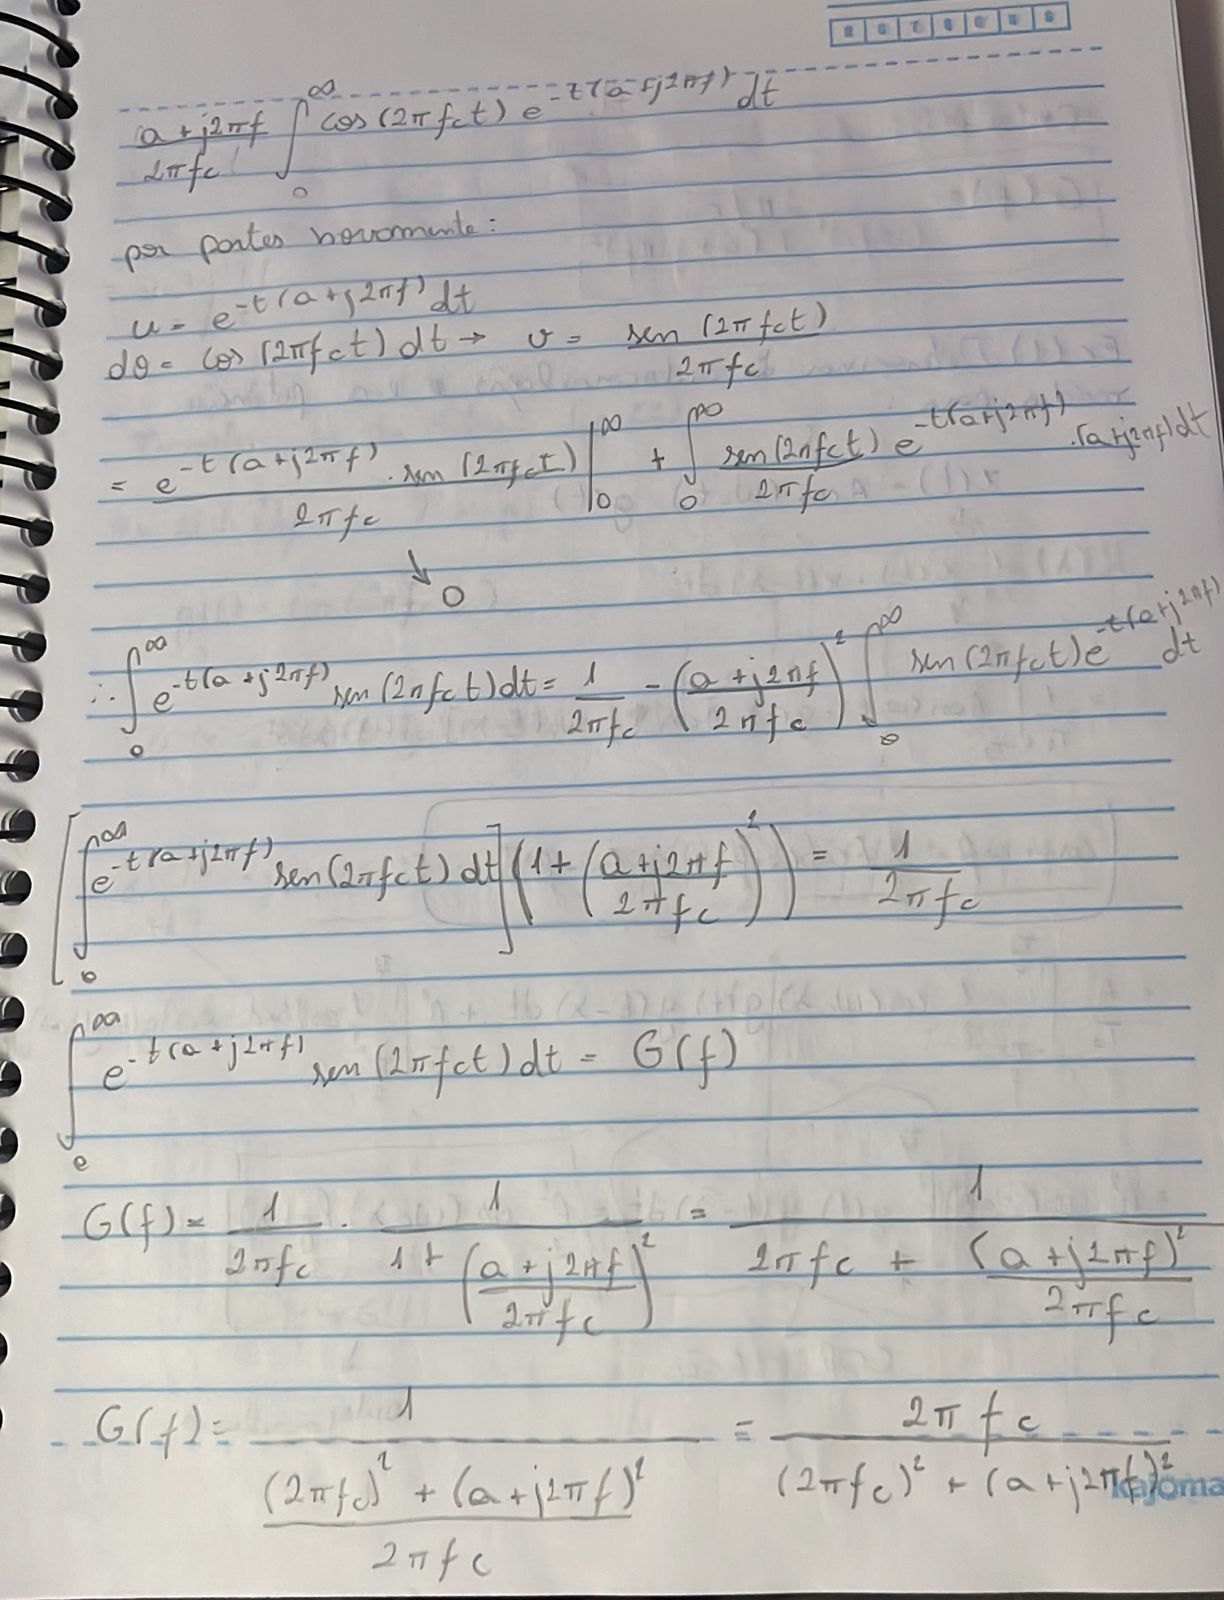 a + j2πf / 2πfc ∫₀^∞ cos(2πfct) e^-t(a+j2πf) dt
por partes novamente:
u = e^-t(a+j2πf) dt
dv = cos(2πfct) dt → v = sen(2πfct) / 2πfc
= e^-t(a+j2πf) . sen(2πfct) / 2πfc |₀^∞ + ∫₀^∞ sen(2πfct) / 2πfc e^-t(a+j2πf) .(a+j2πf)dt
↘ 0
∴ ∫₀^∞ e^-t(a+j2πf) sen(2πfct)dt = 1 / 2πfc - (a+j2πf / 2πfc)² ∫₀^∞ sen(2πfct)e^-t(a+j2πf) dt
[∫₀^∞ e^-t(a+j2πf) sen(2πfct) dt] (1 + (a+j2πf / 2πfc)²) = 1 / 2πfc
∫₀^∞ e^-t(a+j2πf) sen(2πfct) dt = G(f)
G(f) = 1 / 2πfc . 1 / 1 + (a+j2πf / 2πfc)² = 1 / 2πfc + (a+j2πf)² / 2πfc
G(f) = 1 / (2πfc)² + (a+j2πf)² / 2πfc = 2πfc / (2πfc)² + (a+j2πf)²